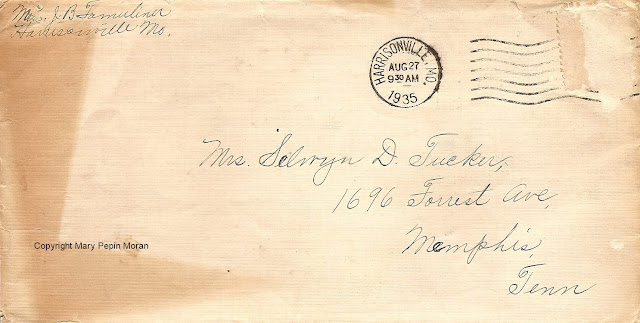 Mrs. J B Famuliner
Harrisonville Mo.
HARRISONVILLE, MO.
AUG 27
9 30 AM
1935
Mrs. Selwyn D. Tucker,
1696 Forrest Ave,
Memphis,
Tenn
Copyright Mary Pepin Moran